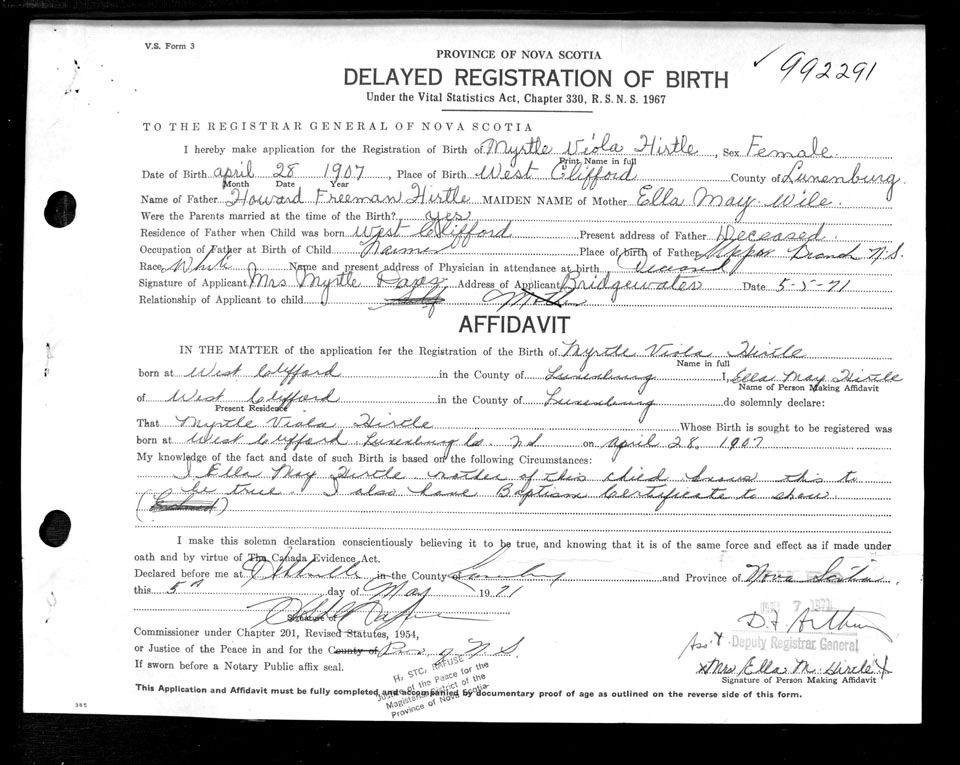 V.S. Form 3
992291
PROVINCE OF NOVA SCOTIA
DELAYED REGISTRATION OF BIRTH
Under the Vital Statistics Act, Chapter 330, R. S. N. S. 1967
TO THE REGISTRAR GENERAL OF NOVA SCOTIA
I hereby make application for the Registration of Birth of Myrtle Viola Hirtle, Sex Female.
Print Name in full
Date of Birth april 28 1907, Place of Birth West Clifford County of Lunenburg.
Month Date Year
Name of Father Howard Freeman Hirtle MAIDEN NAME of Mother Ella May Wile.
Were the Parents married at the time of the Birth? yes
Residence of Father when Child was born West Clifford Present address of Father Deceased.
Occupation of Father at Birth of Child Farmer Place of birth of Father Upper Branch N.S.
Race White Name and present address of Physician in attendance at birth
Signature of Applicant Mrs Myrtle Address of Applicant Bridgewater Date 5-5-71
Relationship of Applicant to child Self Mother
AFFIDAVIT
IN THE MATTER of the application for the Registration of the Birth of Myrtle Viola Hirtle
Name in full
born at West Clifford in the County of Lunenburg I, Ella May Hirtle
Name of Person Making Affidavit
of West Clifford in the County of Lunenburg do solemnly declare:
Present Residence
That Myrtle Viola Hirtle Whose Birth is sought to be registered was
born at West Clifford Lunenburg Co. NS on april 28. 1907
My knowledge of the fact and date of such Birth is based on the following Circumstances:
I Ella May Hirtle mother of this child know this to
be true. I also have Baptism Certificate to show
I make this solemn declaration conscientiously believing it to be true, and knowing that it is of the same force and effect as if made under
oath and by virtue of The Canada Evidence Act.
Declared before me at in the County of Lunenburg and Province of Nova Scotia.
this 5th day of May 1971
7 1971
Signature of
D. F. Arthur
Commissioner under Chapter 201, Revised Statutes, 1954,
Ass't Deputy Registrar General
or Justice of the Peace in and for the County of Prov. of N S.
If sworn before a Notary Public affix seal.
x Mrs Ella M. Hirtle x
Signature of Person Making Affidavit
H. STC. RAFUSE
Justice of the Peace for the
Magisterial District of the
Province of Nova Scotia
This Application and Affidavit must be fully completed and accompanied by documentary proof of age as outlined on the reverse side of this form.
305